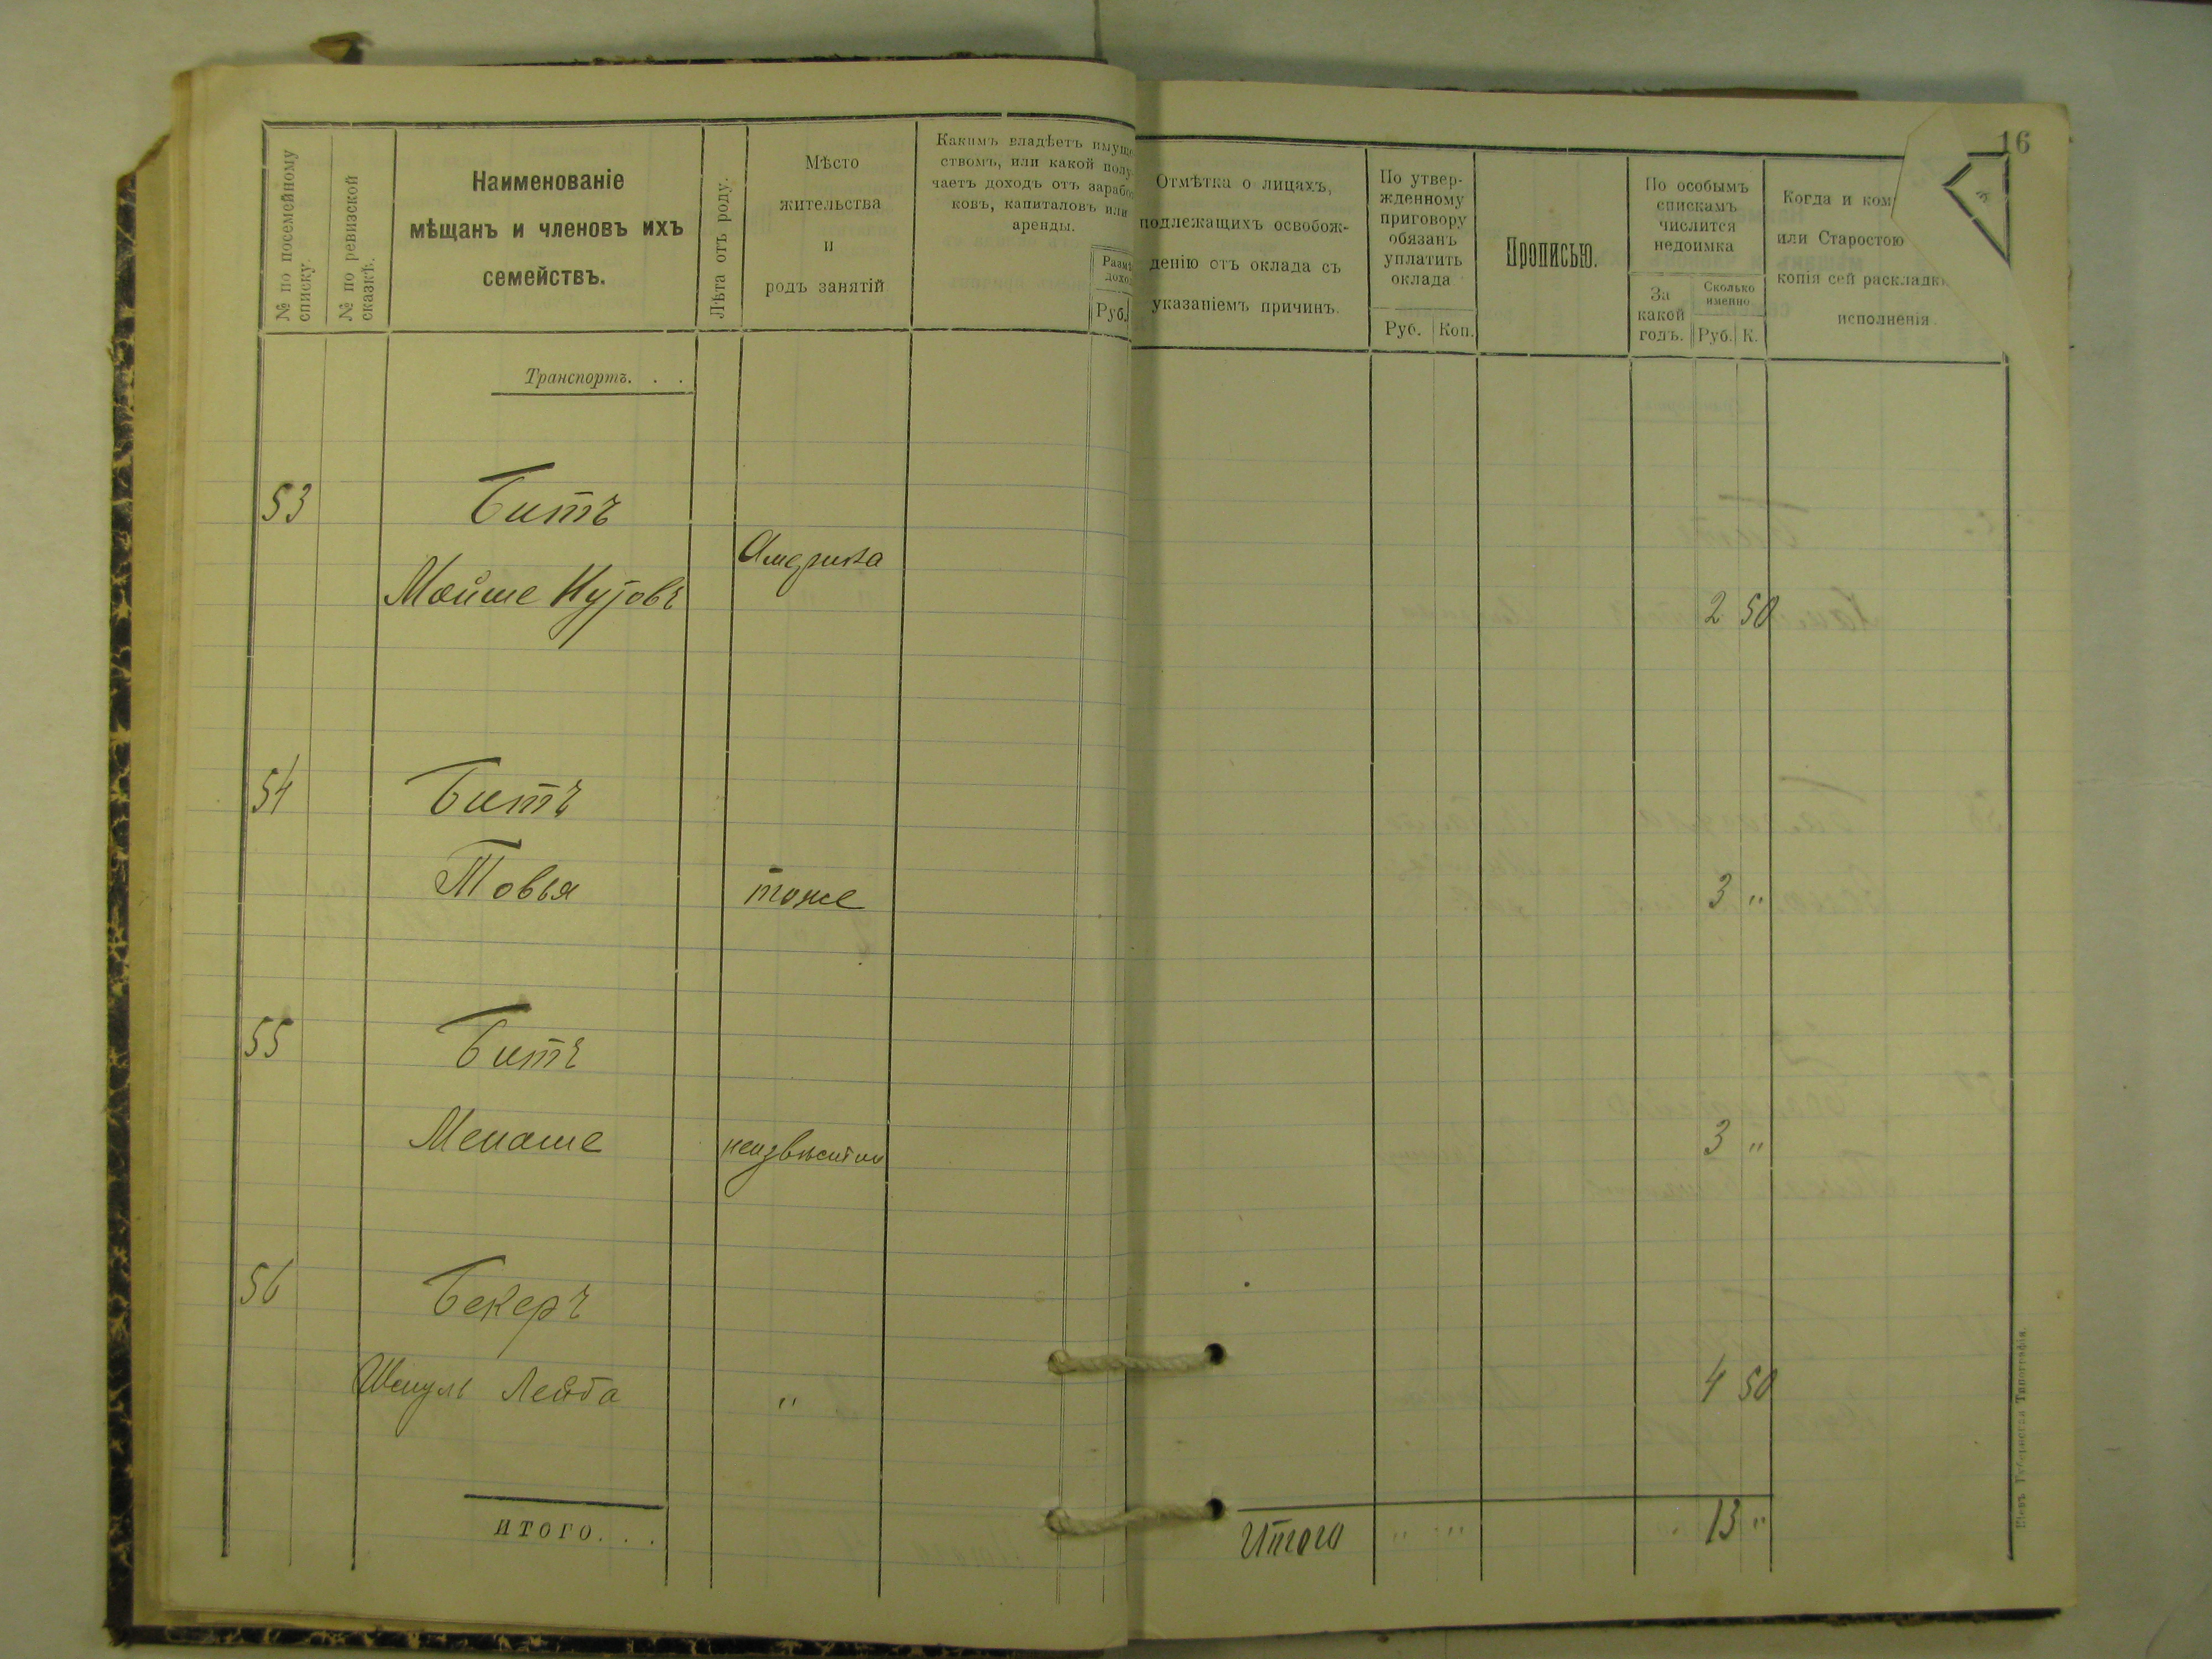 16
№ по посемейному
списку.
№ по ревизской
сказкѣ.
Наименованіе
мѣщанъ и членовъ ихъ
семействъ.
Лѣта отъ роду.
Мѣсто
жительства
и
родъ занятій
Какимъ владѣетъ имуще
ствомъ, или какой полу
чаетъ доходъ отъ зарабо
ковъ, капиталовъ или
аренды.
Руб.
Отмѣтка о лицахъ,
подлежащихъ освобож-
денію отъ оклада съ
указаніемъ причинъ.
По утвер-
жденному
приговору
обязанъ
уплатить
оклада
Руб. Коп.
Прописью.
По особымъ
спискамъ
числится
недоимка
За
какой
годъ.
Сколько
именно
Руб. К.
Когда и ком
или Старостою
копія сей раскладк
исполненія
Транспортъ. . .
53 Битъ
Америка
Мойше 2 50
54 Битъ
Товья тоже 3 "
55 Битъ
Менаше неизвѣстно 3 "
56 Бекеръ
Шмуль Лейба " 4 50
ИТОГО. . .
Итого " " 13 "
Кіевъ Губернская Типографія.